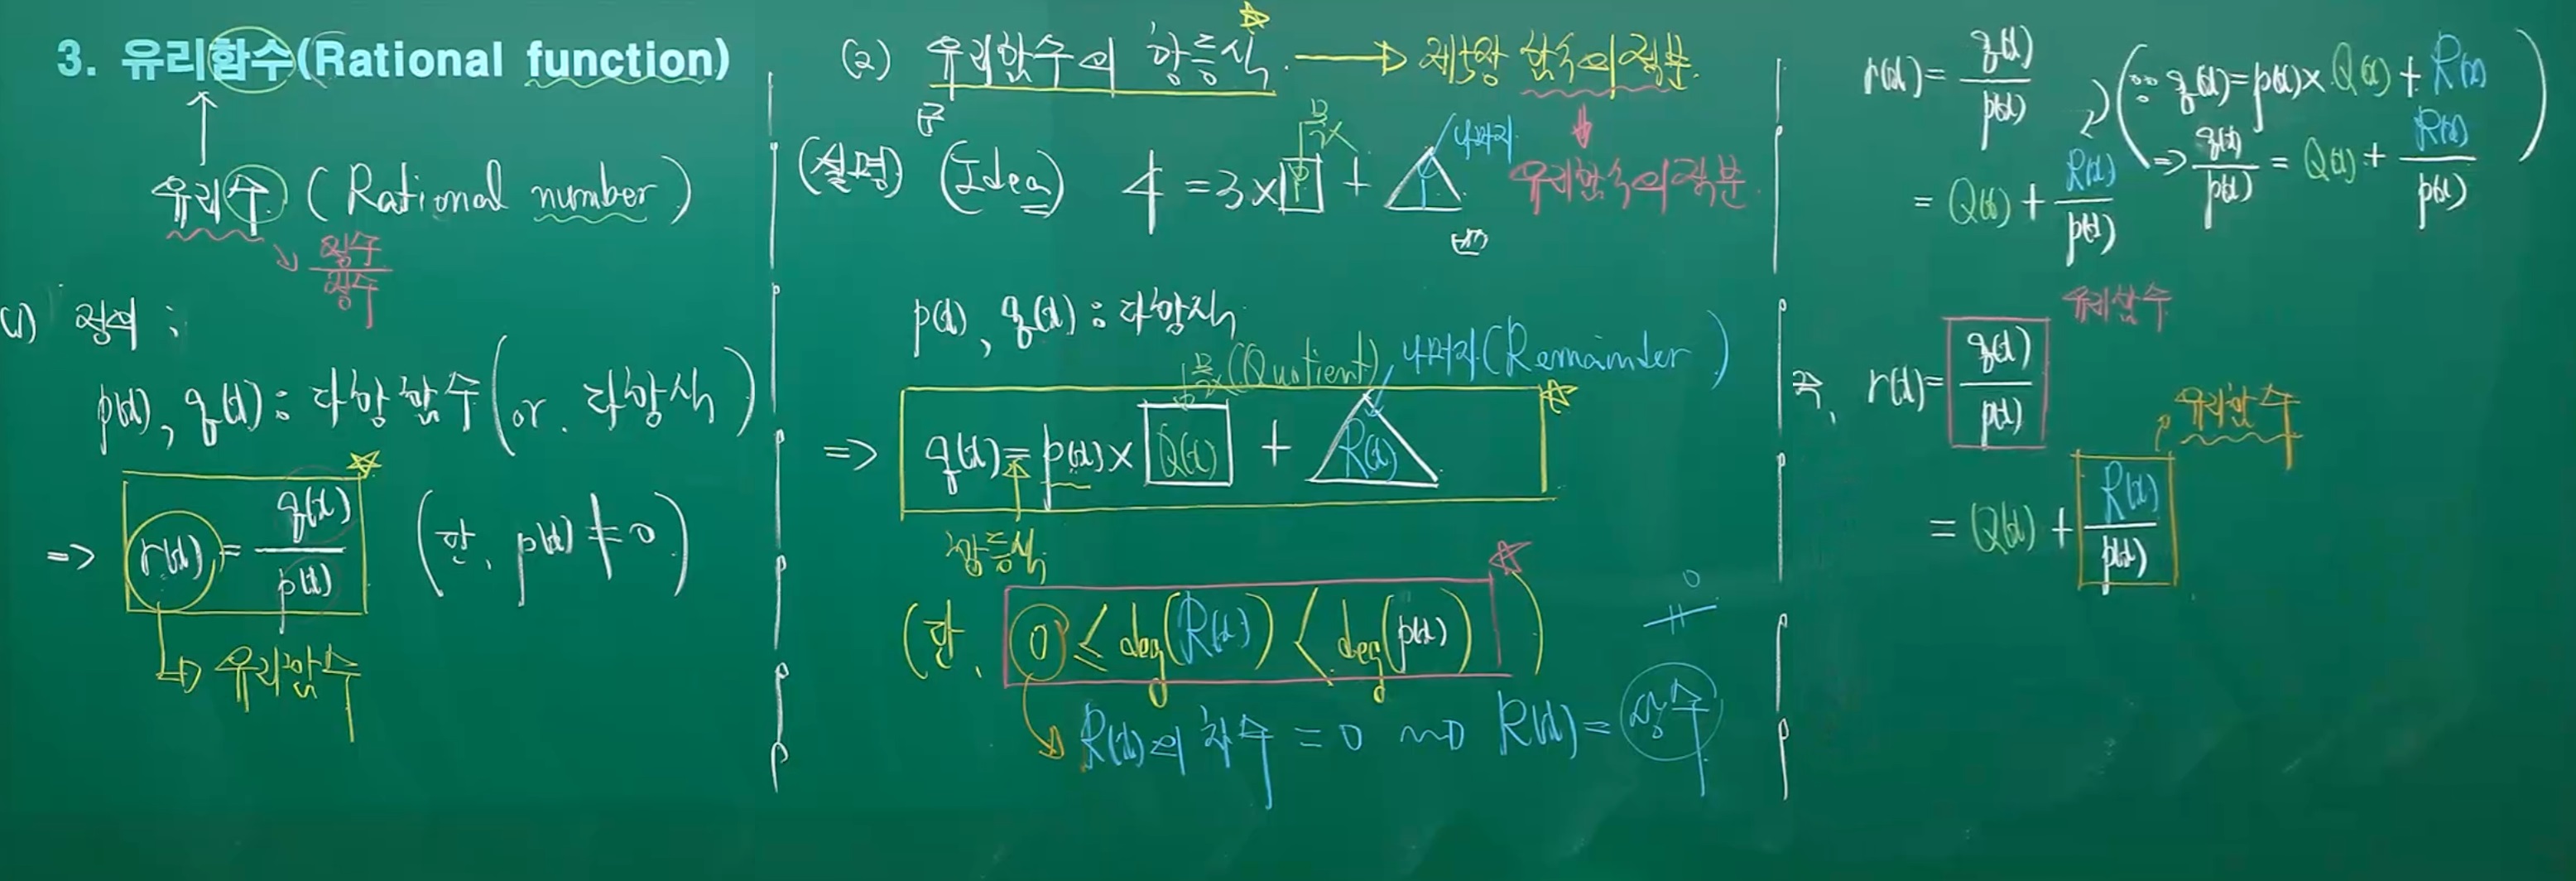 3. 유리함수(Rational function)
유리수 (Rational number)
정수
정수
(1) 정의 :
p(x), q(x) : 다항함수 (or. 다항식)
=> r(x) = q(x)/p(x) (단, p(x) ≠ 0)
유리함수
(2) 유리함수의 항등식 → 제5장 함수의 적분
몫
나머지
(설명) (Idea) 4 = 3 × □ + △
유리함수의 적분
p(x), q(x) : 다항식
몫(Quotient) 나머지(Remainder)
=> q(x) = p(x) × Q(x) + R(x)
항등식
(단, 0 ≤ deg(R(x)) < deg(p(x)))
R(x)의 차수 = 0 ~> R(x) = 상수
≠ 0
r(x) = q(x)/p(x) (∵ q(x) = p(x) × Q(x) + R(x)
=> q(x)/p(x) = Q(x) + R(x)/p(x))
= Q(x) + R(x)/p(x)
유리함수
즉, r(x) = q(x)/p(x)
유리함수
= Q(x) + R(x)/p(x)